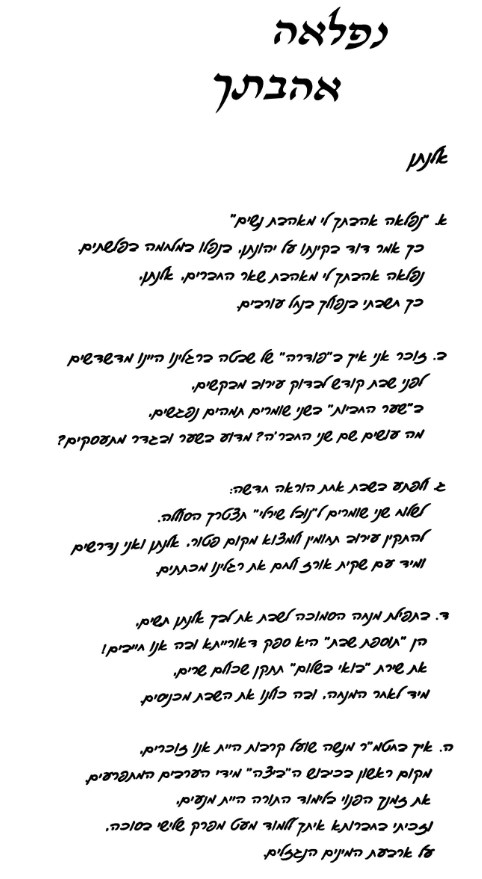 נפלאה
אהבתך
אלנתן
א. "נפלאה אהבתך לי מאהבת נשים"
כך אמר דוד בקינתו על יהונתן, בנפלו במלחמה בפלשתים.
נפלאה אהבתך לי מאהבת שאר החברים, אלנתן,
כך חשבתי בנפולך בנחל עורבים.
ב. זוכר אני איך ב"פודרה" של שבטה ברגלינו היינו מדשדשים
לפני שבת קודש לבדוק עירוב מבקשים,
ב"שער החביות" בשני שומרים תמהים נפגשים,
מה עושים שם שני החבר'ה? מדוע בשער ובגדר מתעסקים?
ג. ולפתע בשבת אחת הוראה חדשה:
לשלוח שני שומרים ל"נוהל שירלי" תצטרך הסוללה.
להתקין עירוב תחומין ולמצוא מקום פטור, אלנתן ואני נדרשים
ומיד עם שקית אורז ולחם את רגלינו מכתתים.
ד. בתפילת מנחה הסמוכה לשבת את לבך אלנתן תשים,
הן "תוספת שבת" היא ספק דאורייתא ובה אנו חייבים!
את שירת "בואי בשלום" תתקן שכולם שרים,
מיד לאחר המנחה, ובה כולנו את השבת מכניסים.
ה. איך בחטמ"ר מנשה שועל קרבות היית אנו זוכרים,
מקום ראשון בכיבוש ה"ביצה" מידי הערבים המתפרעים.
את זמנך הפנוי בלימוד התורה היית מנעים,
וזכיתי בחברותא איתך ללמוד מעט מפרק שלישי בסוכה,
על ארבעת המינים הנגזלים.